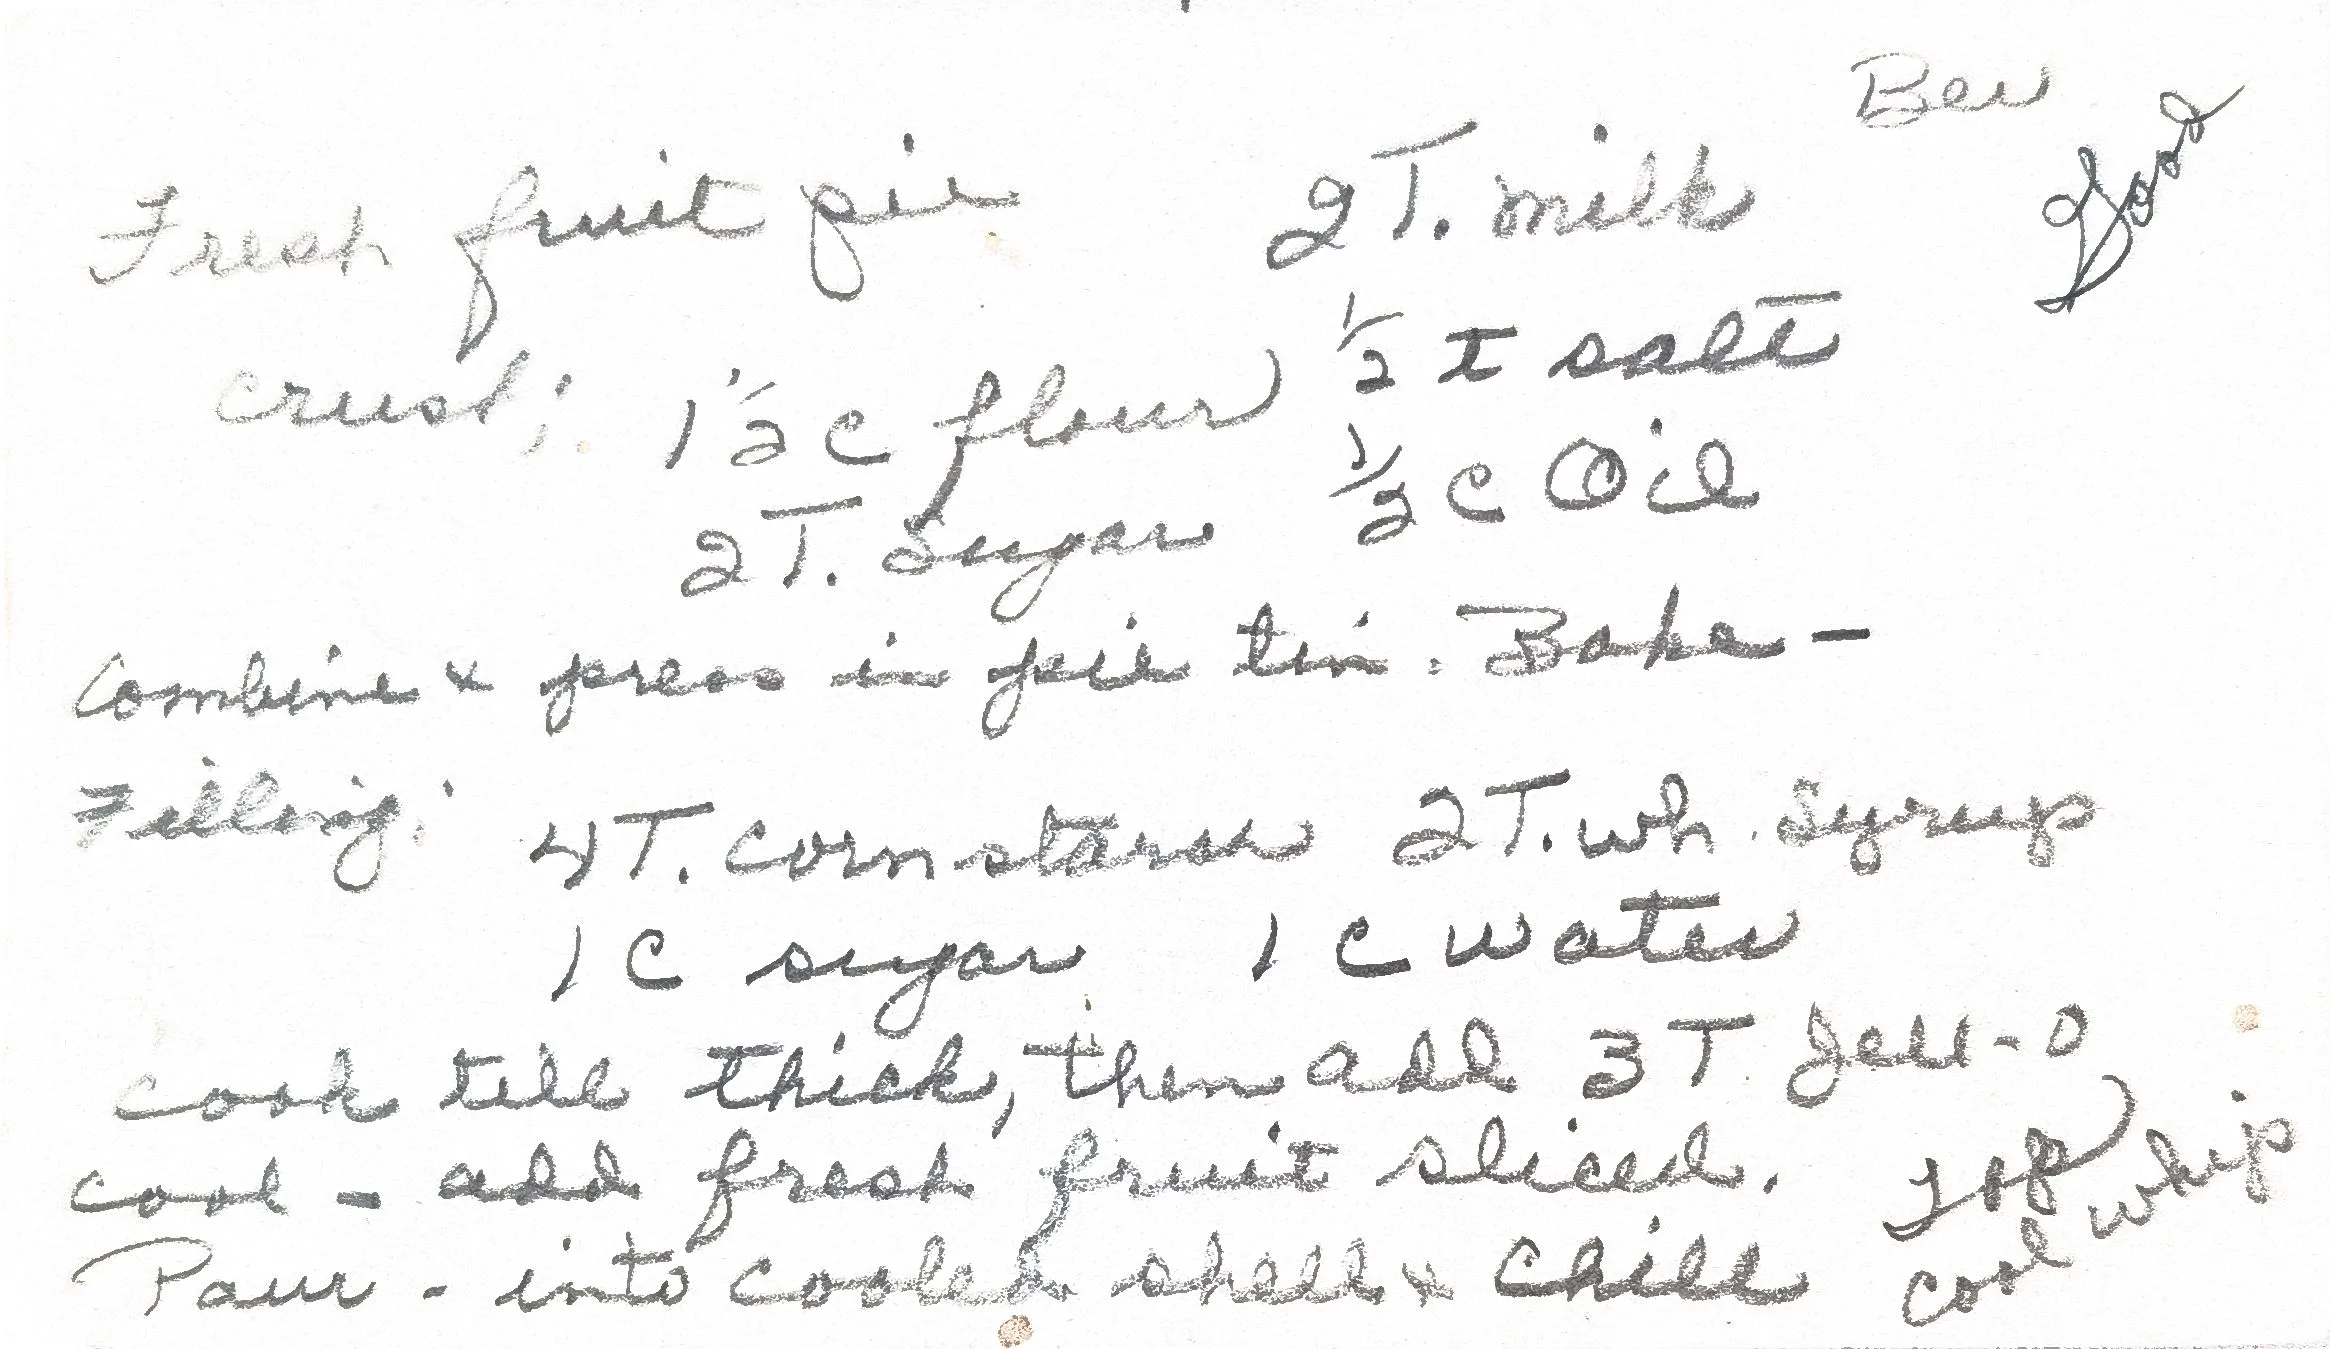 Bev
Good
Fresh fruit pie
2 T. milk
crust; 1 1/2 c flour
1/2 t salt
2 T. Sugar
1/2 c Oil
Combine & press in pie tin. Bake -
Filling: 4 T. cornstarch 2 T. wh. syrup
1 c sugar 1 c water
cook till thick, then add 3 T Jell-O
cool - add fresh fruit sliced.
Pour - into cooled shell & chill
Top
cool whip